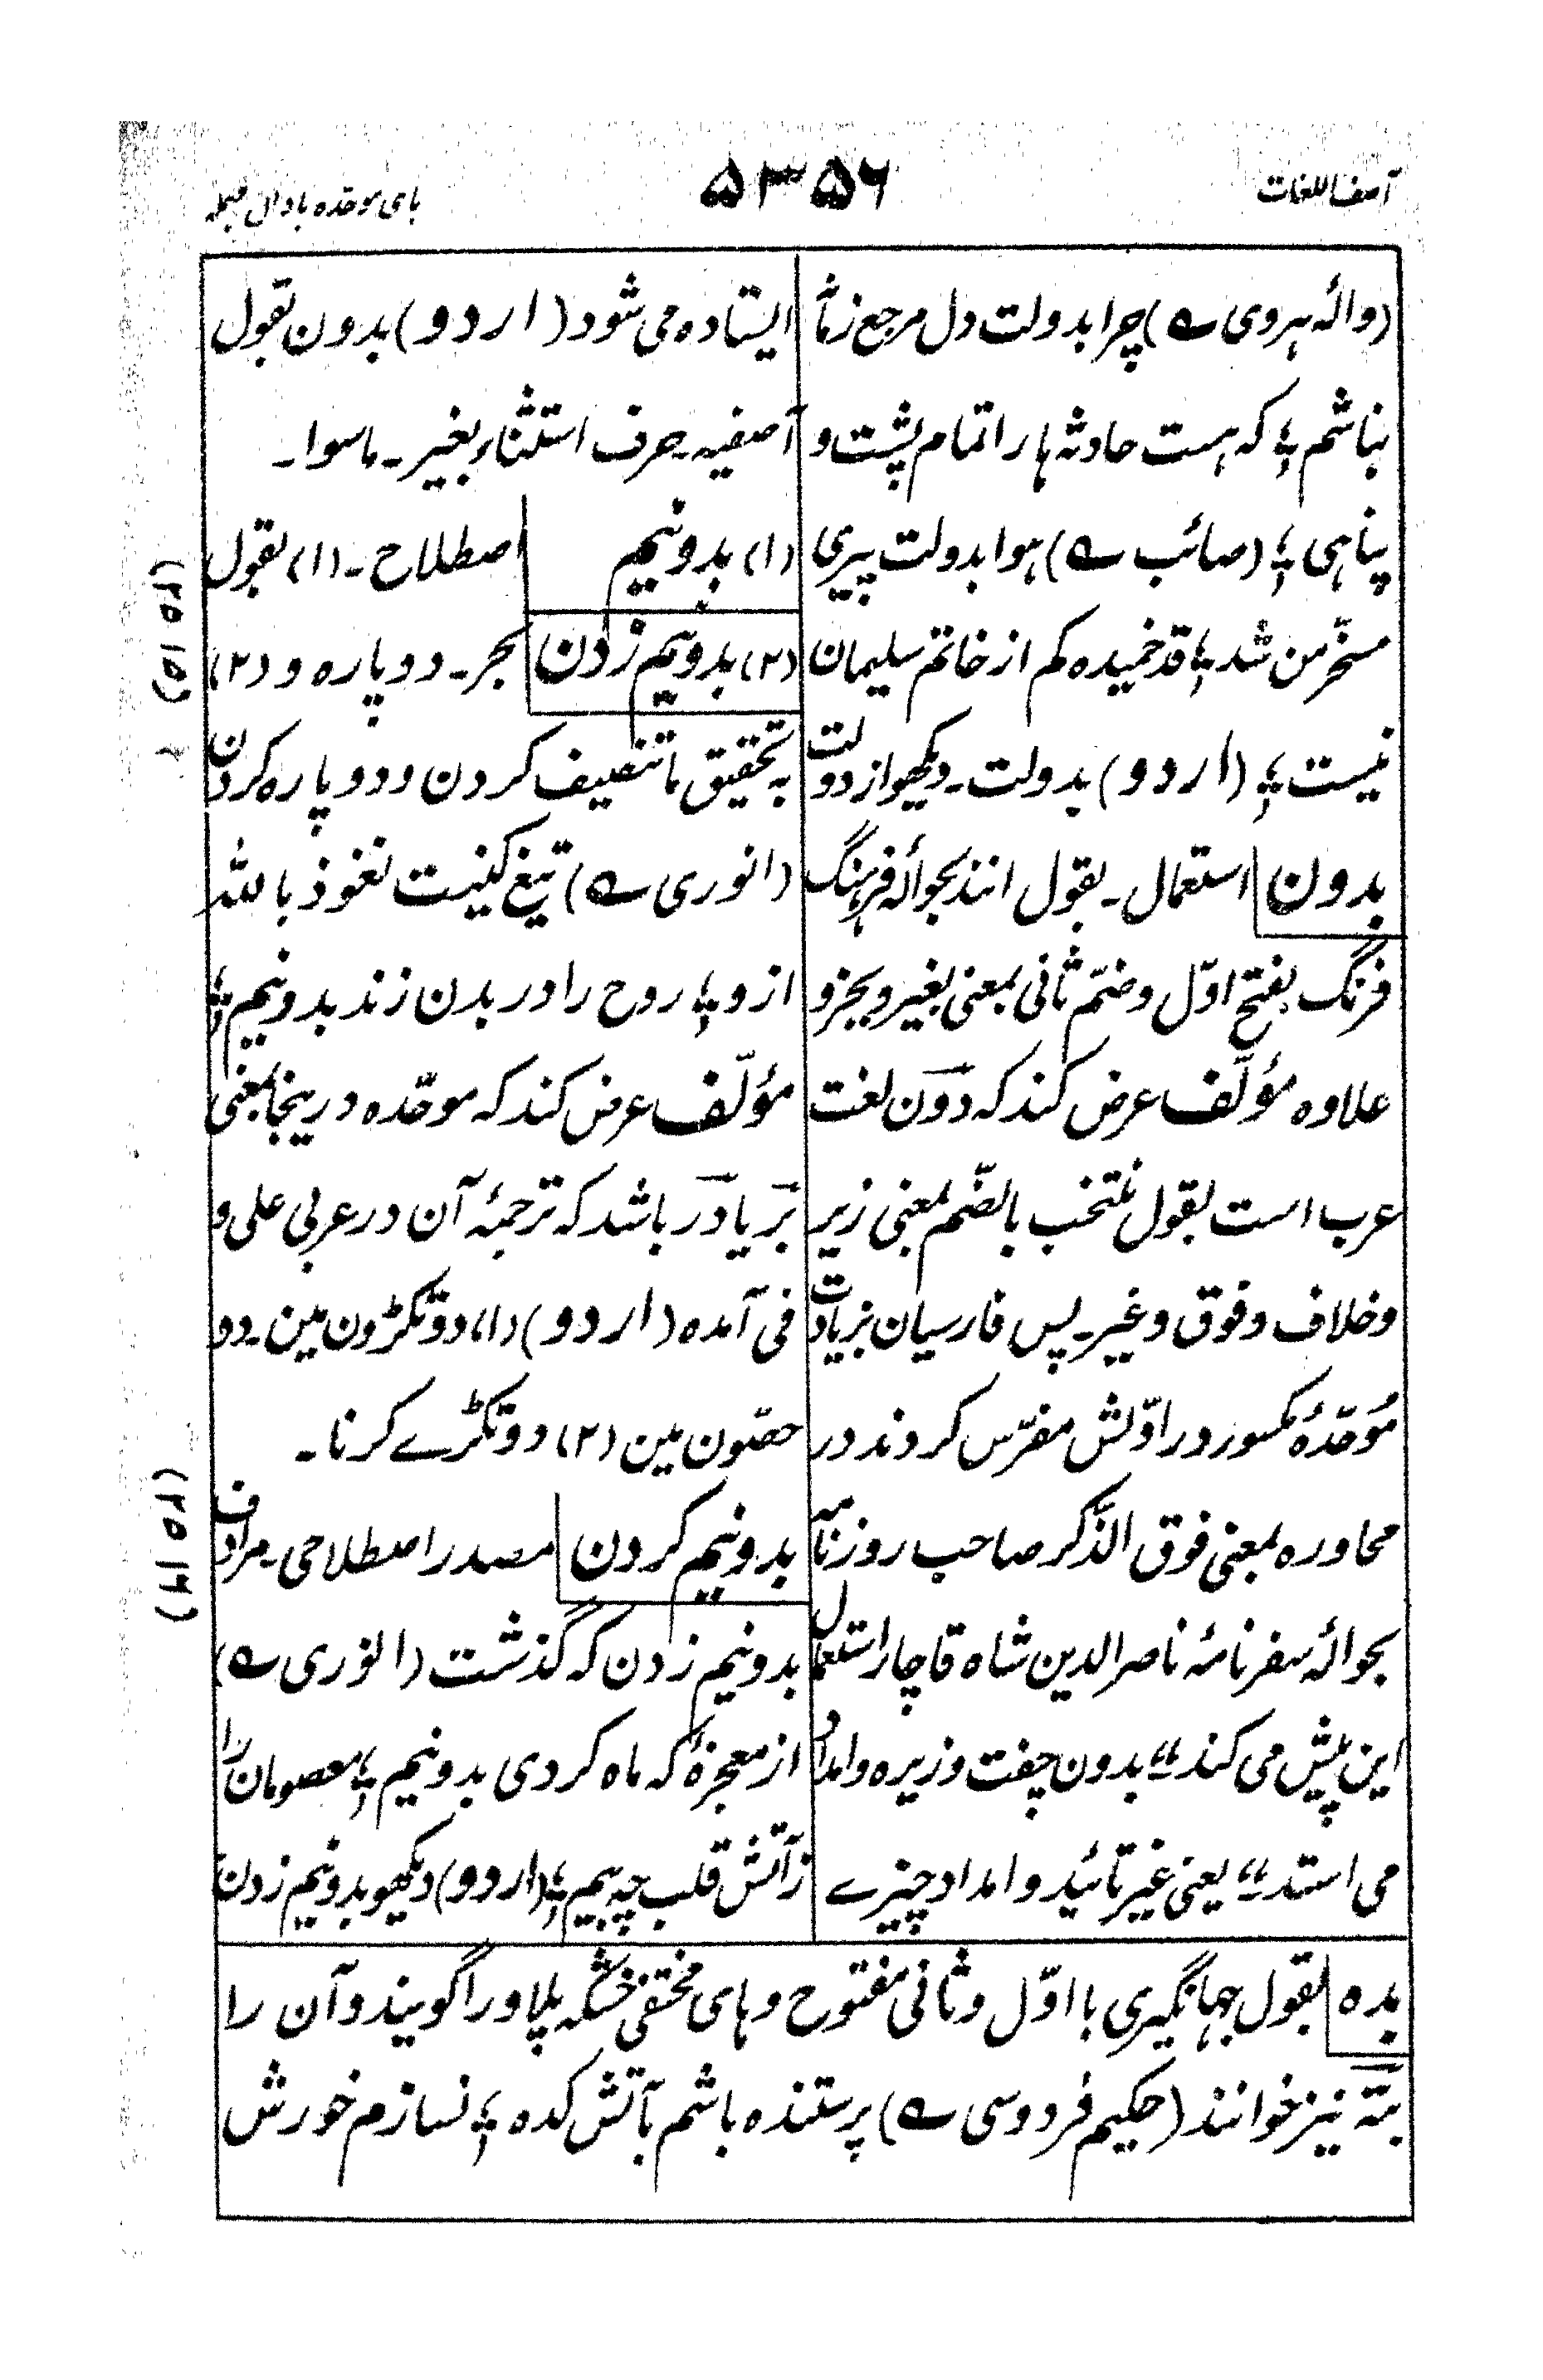 آصف اللغات
۵۳۵۶
بای موحده با دال مهمله
(والہ ہروی ؎) چرا بدولت دل مرجع زمانہ
نباشم ؛ کہ ہست حادثہ ہا را تمام پشت و
پناہی ؛ (صائب ؎) ہوا بدولت پیری
مسخّر من شد ؛ قد خمیدہ کم از خاتم سلیمان
نیست ؛ (اردو) بدولت۔ دیکھو از دولت
بدون | استعمال۔ بقول انند بحوالۂ فرہنگ
فرنگ بفتح اوّل و ضمّ ثانی بمعنی بغیر و بجز و
علاوہ مؤلّف عرض کند کہ دون لغت
عرب است بقول منتخب بالضّم بمعنی زیر
و خلاف و فوق و غیر۔ پس فارسیان بزیادت
مُوَحّدۂ مکسور در اوّلش مفرّس کردند در
محاورہ بمعنی فوق الذّکر صاحب روزنامہ
بحوالۂ سفرنامۂ ناصر الدین شاہ قاچار استعمال
این پیش می کند ”بدون چفت و زیرہ و امداد
می استد“ یعنی غیر تائید و امداد چیزے
ایستادہ می شود (اردو) بدون بقول
آصفیہ۔ حرف استثناء بغیر۔ ماسوا۔
(۱) بدونیم | اصطلاح۔ (۱) بقول
(۲) بدونیم زدن | بحر۔ دوپارہ و (۲)
بہ تحقیق ما تنصیف کردن و دو پارہ کردن
(انوری ؎) تیغ کینیت نعوذ باللہ
ازو ؛ روح را در بدن زند بدونیم ؛
مؤلّف عرض کند کہ موحّدہ درینجا بمعنی
بَر یا دَر باشد کہ ترجمۂ آن در عربی علی و
فی آمدہ (اردو) (۱) دو ٹکڑون مین۔ دو
حصّون مین (۲) دو ٹکڑے کرنا۔
بدونیم کردن | مصدر اصطلاحی۔ مرادف
بدونیم زدن کہ گذشت (انوری ؎)
از معجزۂ کہ ماہ کردی بدونیم ؛ معصومان را
ز آتش قلب چہ بیم ؛ (اردو) دیکھو بدونیم زدن
(۲۵۱۵)
(۲۵۱۶)
بدہ | بقول جہانگیری با اوّل و ثانی مفتوح و ہای مختفی خشکہ پلاو را گویند و آن را
بتہ نیز خوانند (حکیم فردوسی ؎) پرستندہ باشم بآتش کدہ ؛ نسازم خورش